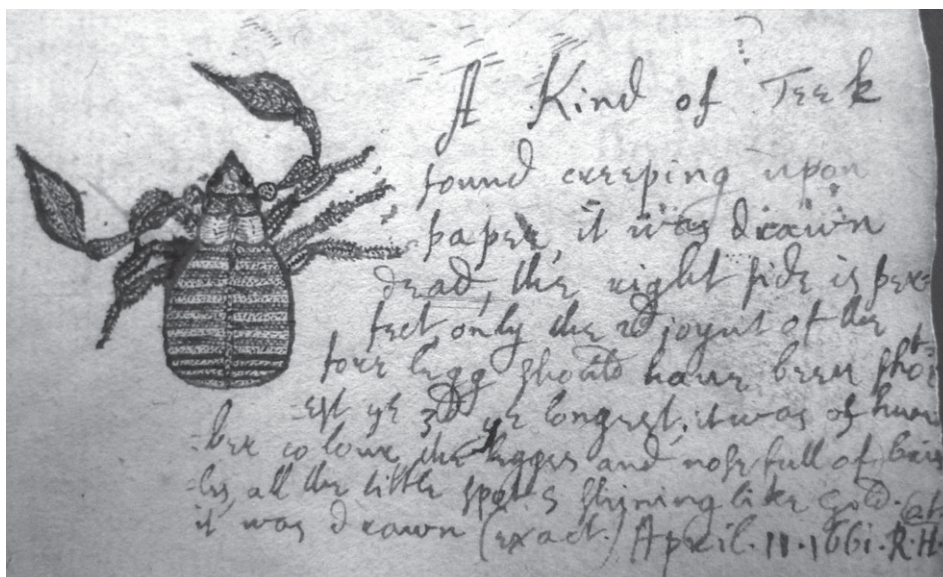 A Kind of Teek
found creeping upon
paper, it was drawn
dead, the right side is per=
fect, only the 2d joynt of the
fore legg should have been short=
=est ye 3d ye longest. it was of
=ber colour the legges and nose full of bris
=les, all the little spots shining like gold. (at
it was drawn (exact.) April. 11. 1661. R.H.